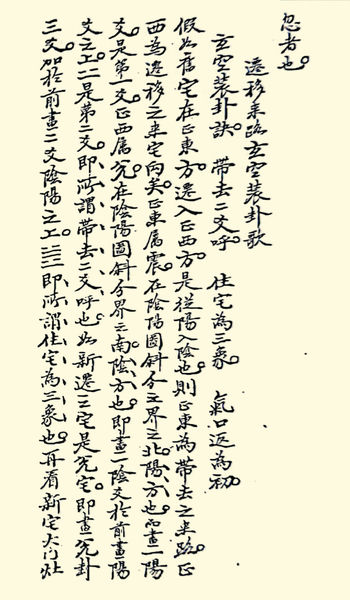 忽者也。
遷移來路玄空裝卦歌
玄空裝卦訣。帶去二爻呼。住宅為三象。氣口返為初。
假如舊宅在正東方。遷入正西方。是從陽入陰也。則正東為帶去之來路。正
西為遷移之來宅向矣。正東屬震。在陰陽圖斜分之界之北。陽方也。而畫一陽
爻。是第一爻。正西屬兌。在陰陽圖斜分界之南。陰方也。即畫一陰爻於前畫陽
爻之上。二是第二爻。即所謂帶去二爻呼也。如新遷之宅是兌宅。即畫兌卦
三爻。加於前畫二爻陰陽之上。即所謂住宅為三象也。再看新宅大門灶